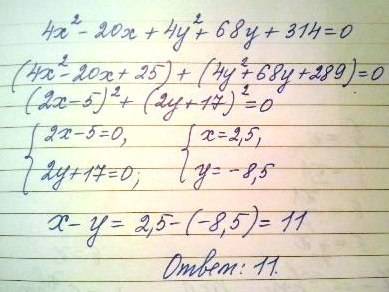 4x² - 20x + 4y² + 68y + 314 = 0
(4x² - 20x + 25) + (4y² + 68y + 289) = 0
(2x - 5)² + (2y + 17)² = 0
{ 2x - 5 = 0, { x = 2,5,
2y + 17 = 0; y = -8,5
x - y = 2,5 - (-8,5) = 11
Ответ: 11.